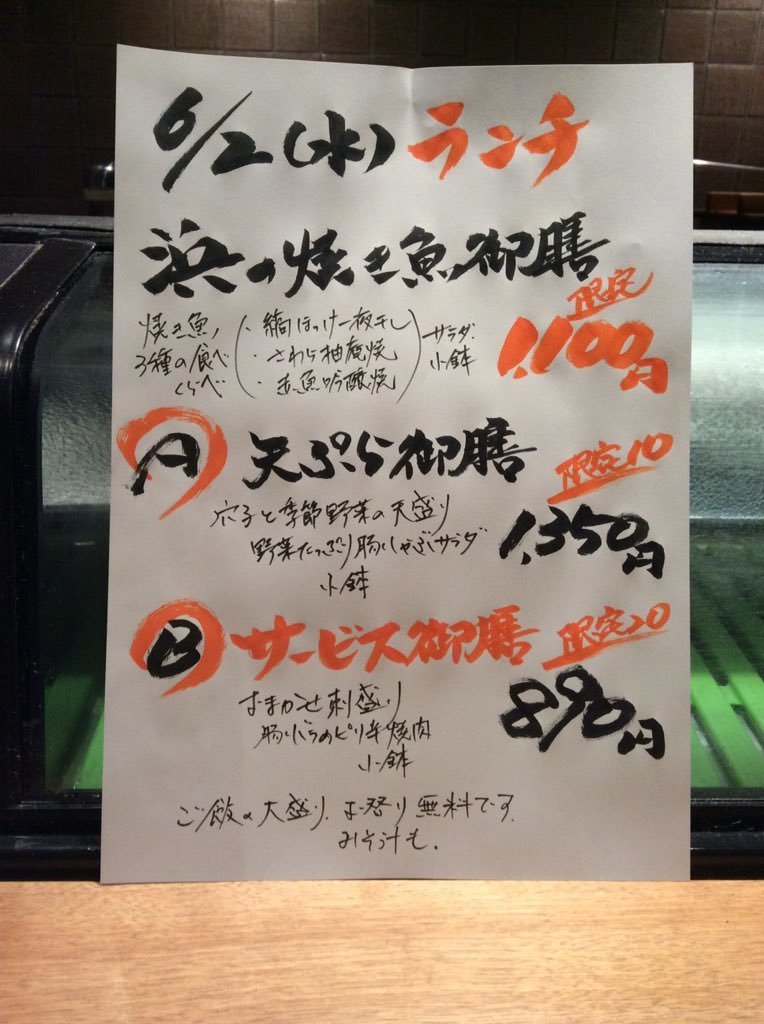 6/2(水)ランチ
浜の焼き魚御膳
限定
1,100円
焼き魚
3種の食べ
くらべ
・縞ほっけ一夜干し
・さわら柚庵焼
・赤魚吟醸焼
サラダ
小鉢
A 天ぷら御膳 限定10
1,350円
穴子と季節野菜の天盛り
野菜たっぷり豚しゃぶサラダ
小鉢
B サービス御膳 限定20
890円
おまかせ刺盛り
豚バラのピリ辛焼肉
小鉢
ご飯の大盛り、お替り無料です。
みそ汁も。